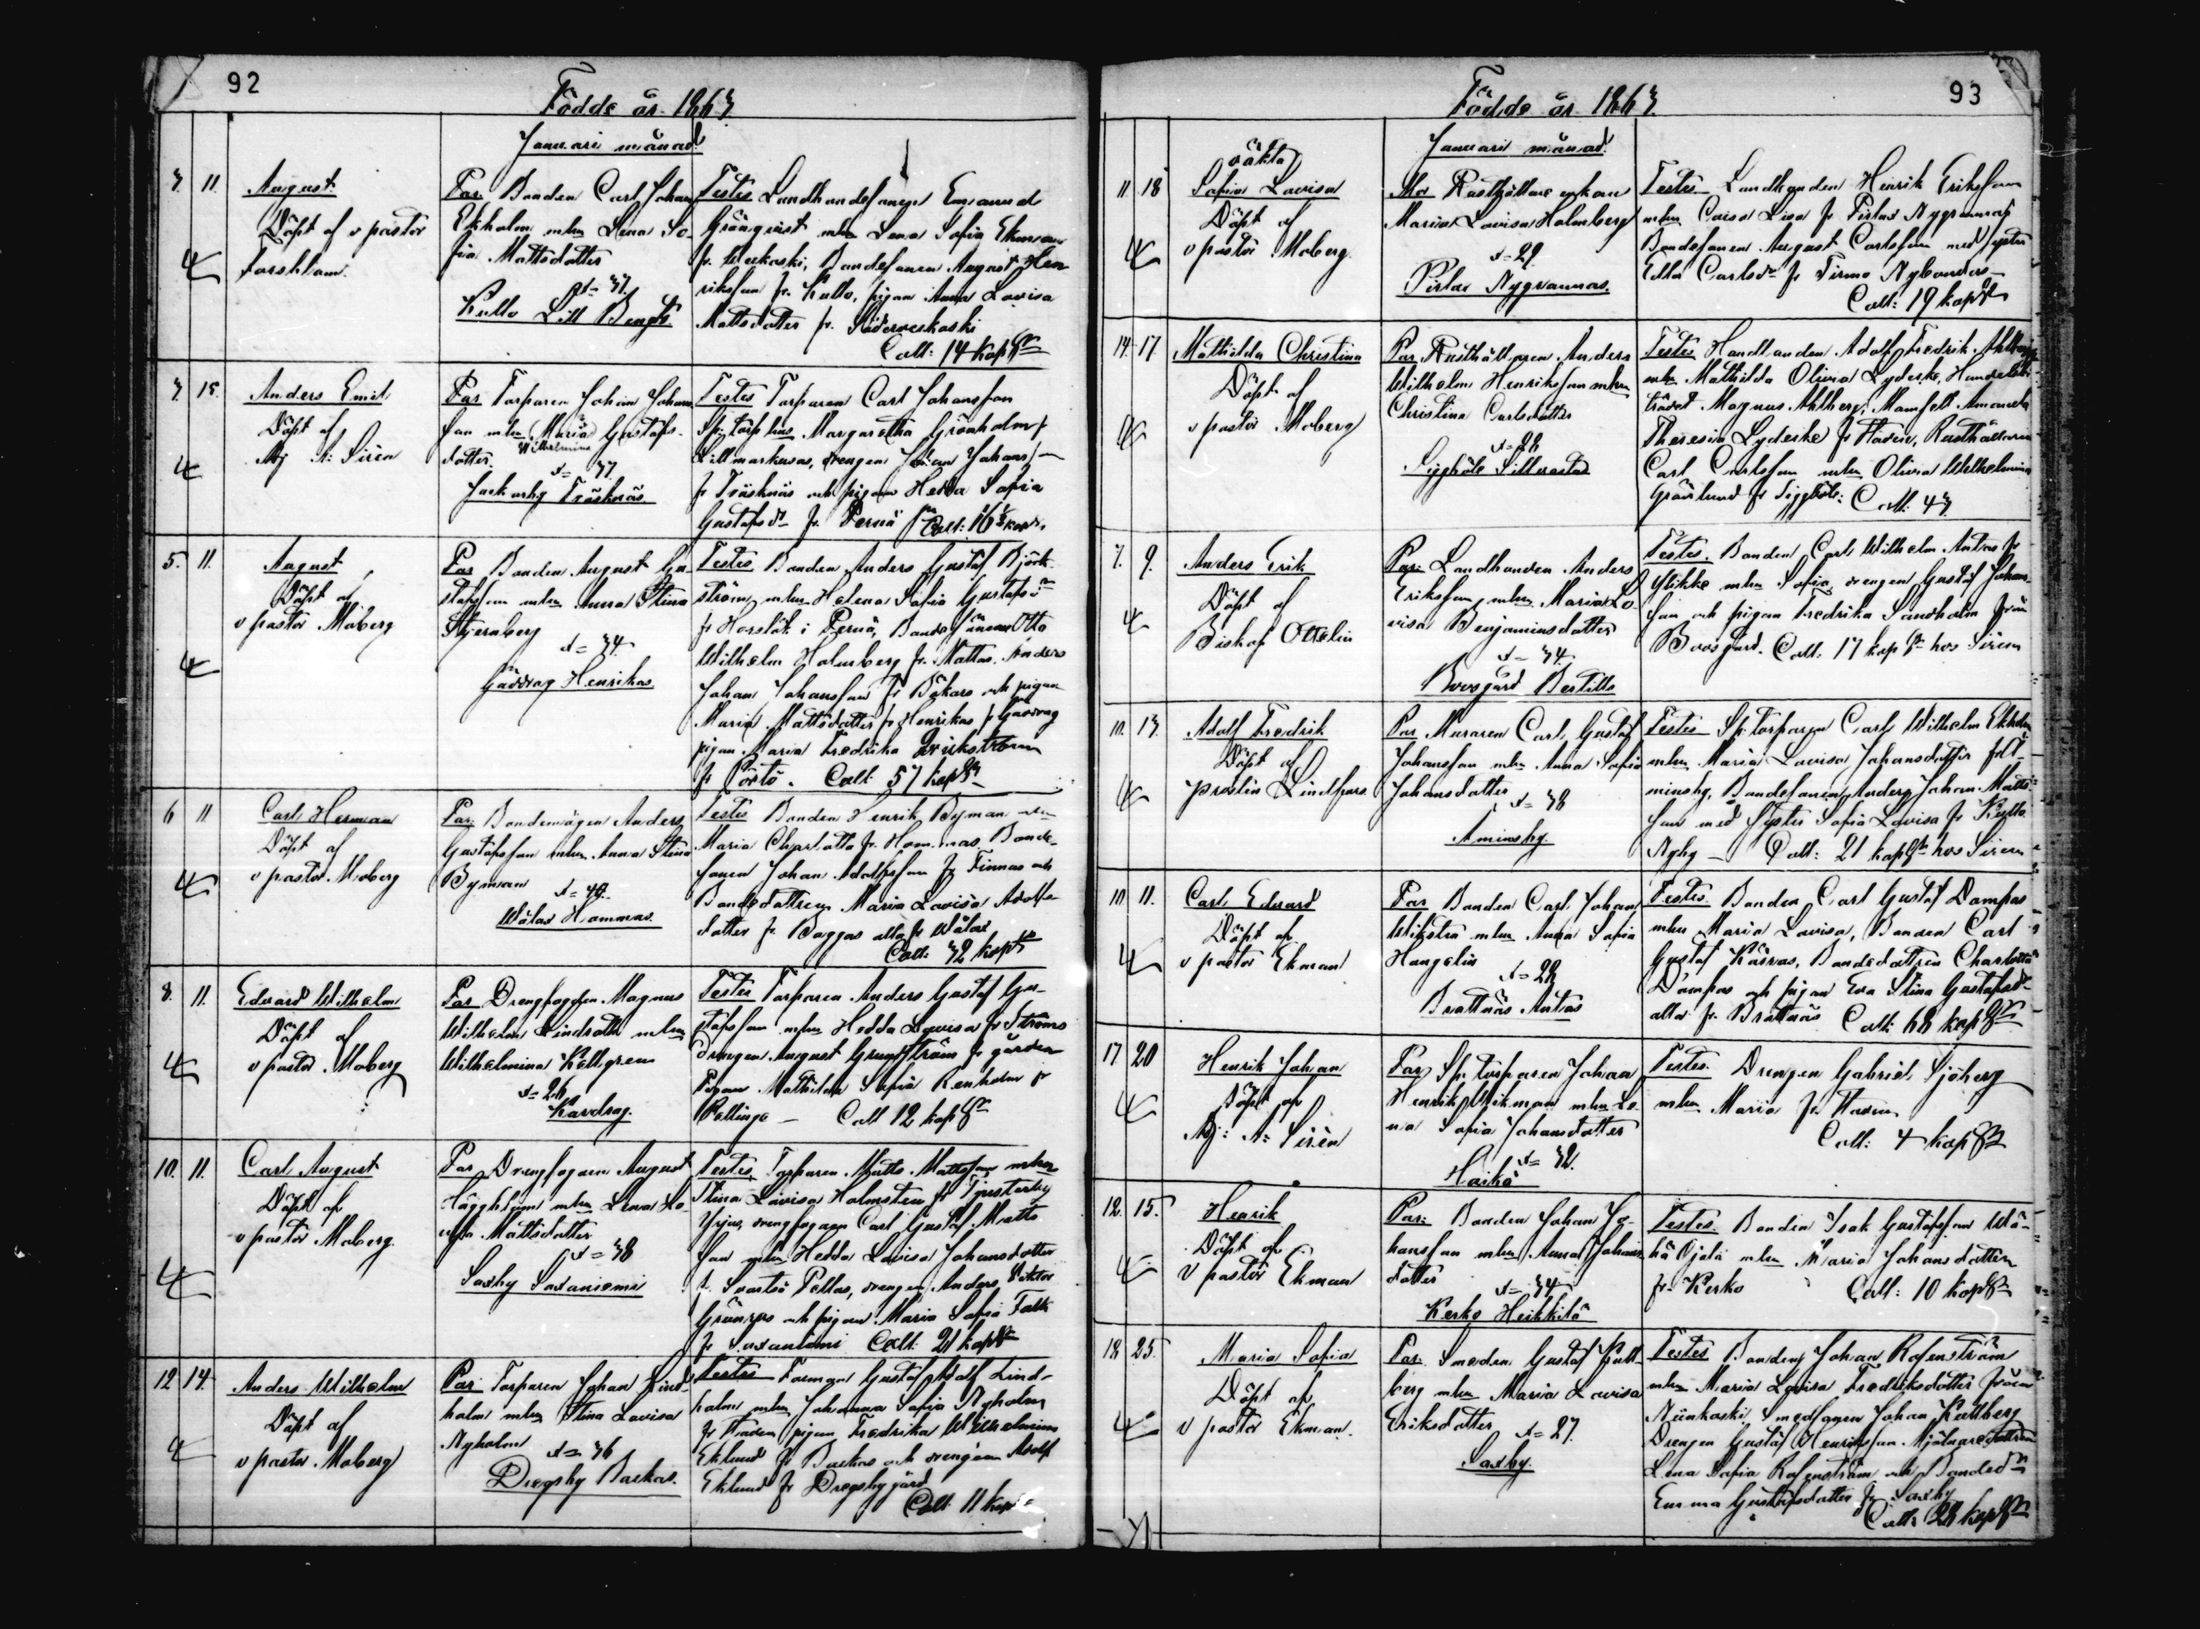 92
Födde år 1863.
Januari månad.
3. 11. August
Döpt af v pastor
Forsblom.
Par. Bonden Carl Johan
Ekholm mhu Lena So-
fia Mattsdotter
Kullo Lill Bengts.
Testes Landbondesonen Emanuel
Grönqvist mhu Lena Sofia Ekman
fr. Weckoski, Bondesonen August Hen
riksson fr. Kullo, pigan Anna Lovisa
Mattsdotter fr. Söderveckoski
Coll: 14 kop
3 15. Anders Emil
Döpt af
Adj A: Sirén
Par Torparen Johan Johans
son mhu (Maria) Gustafs-
Wilhelmina
dotter.
Jackarby Träsknäs.
Testes Torparen Carl Johansson
Margaretha Grönholm
Lillmarkusas, drengen Johan Johans
fr Träsknäs och pigan Hedda Sofia
Gustafsdr fr. Pernå Coll: 16
5. 11. August
Döpt af
v pastor Moberg
Par Bonden August Gu-
stafsson mhu Anna Stina
Stjernberg
Gäddrag Henrikas
Testes. Bonden Anders Gustaf Björk-
ström, mhu Helena Sofia Gustafsdr
fr Horslök i Pernå, Bondesonen Otto
Wilhelm Holmberg fr. Mattas. Anders
Johan Johansson fr Bökars och pigan
Maria Mattsdotter fr Henrikas fr Gäddrag
pigan Maria Fredrika
fr Pörtö. Coll: 57 kop
6 11 Carl Herman
Döpt af
v pastor Moberg
Par. Bondemågen Anders
Gustafsson mhu Anna Stina
Byman
Wålax Hommas.
Testes Bonden Henrik Byman mhu
Maria Charlotta fr. Hommas Bonde-
sonen Johan Adolfsson fr Finnas och
Bondedottren Maria Lovisa Adolfs-
dotter fr Baggas alla fr Wålax
Coll: 32 kop
8. 11. Eduard Wilhelm
Döpt af
v pastor Moberg
Par Drengfogden Magnus
Wilhelm Lindroth mhu
Wilhelmina Kellgren
= 26
Kardrag.
Testes Torparen Anders Gustaf Gu-
stafsson mhu Hedda Lovisa fr Ströms
drengen August Grundström fr gården
Pigan Mathilda Sofia Renholm fr
Pellinge — Coll 12 kop
10. 11. Carl August
Döpt af
v pastor Moberg.
Par Drengfogden August
Häggblom mhu Lena Lo-
visa Mattsdotter
= 38
Saxby Saxaniemi
Testes. Torparen Matts Mattsson mhu
Stina Lovisa Holmsten fr Tjusterby
drengfogden Carl Gustaf Matts
son mhu Hedda Lovisa Johansdotter
fr. Svartså Pellas, drengen Anders Viktor
Grönroos och pigan Maria Sofia Falk
fr Saxaniemi Coll. 21 kop
12 14. Anders Wilhelm
Döpt af
v pastor Moberg
Par. Torparen Johan Lind-
holm mhu Stina Lovisa
Nyholm = 36
Drägsby Backas.
Testes Forman Gustaf Adolf Lind-
holm mhu Johanna Sofia Nyholm
fr Staden pigan Fredrika Wilhelmina
Eklund fr Backas och drengen Adolf
Eklund fr Drägsby gård
Coll: 11 kop
93
Födde år 1863.
Januari månad.
11. 18. oäkta
Sofia Lovisa
Döpt af
v pastor Moberg.
Mor Rusthållare enkan
Maria Lovisa Holmberg
= 29.
Pirlax Nygrannas.
Testes Landbonden Henrik Eriksson
mhu Caisa Lisa fr Pirlax Nygrannas
Bondesonen August Carlsson med syster
Edla Carlsdr fr Tirmo Nybondas—
Coll: 19 kop
14. 17 Mathilda Christina
Döpt af
v pastor Moberg
Par. Rusthållaren Anders
Wilhelm Henriksson mhu
Christina Carlsdotter
= 28
Siggböle Sillvastas
Testes Handlanden Adolf Fredrik Ahlberg
mhu Mathilda Olivia Lydecke, Handelsbi-
trädet Magnus Ahlberg, Mamsell Amanda
Theresia Lydecke fr Staden, Rusthållaren
Carl Carlsson mhu Olivia Wilhelmina
Grönlund fr Siggböle: Coll: 43
7. 9. Anders Erik
Döpt af
Biskop Ottelin
Par: Landbonden Anders
Eriksson, mhu Maria Lo
visa Benjaminsdotter
= 34.
Boesgård Bertills
Testes. Bonden Carl Wilhelm Antas fr
Ylikke mhu Sofia, drengen Gustaf Johans-
son och pigan Fredrika Sandholm från
Boesgård. Coll: 17 kop hos Sirén
10. 13. Adolf Fredrik
Döpt af
prosten Lindfors
Par Muraren Carl Gustaf
Johansson mhu Anna Sofia
Johansdotter = 38
Aminsby.
Testes Sp: torparen Carl Wilhelm Ekholm
mhu Maria Lovisa Johansdotter fr A-
minsby, Bondesonen Anders Johan Matts-
son med syster Sofia Lovisa fr Kullo
Nyby — Coll: 21 kop hos Siren
10 11. Carl Eduard
Döpt af
v pastor Ekman
Par Bonden Carl Johan
Wikströ mhu Anna Sofia
Hongelin
= 28
Brattnäs Antas
Testes. Bonden Carl Gustaf Dampas
mhu Maria Lovisa, Bonden Carl
Gustaf Kärvas, Bondedottren Charlotta
Dampas och pigan Eva Stina Gustafsdr
alla fr Brattnäs Coll: 68 kop
17 20 Henrik Johan
Döpt af
Adj: A: Sirén
Par Sp: torparen Johan
Henrik Wikman mhu Le-
na Sofia Johansdotter
= 32.
Haiko
Testes. Drengen Gabriel Sjöberg
mhu Maria fr. Staden
Coll: 4 kop
12. 15. Henrik
Döpt af
v pastor Ekman
Par: Bonden Johan Jo-
hansson mhu Anna Johans
dotter
= 34
Kerko Heikkilä
Testes. Bonden Isak Gustafsson Wä-
hä Ojala mhu Maria Johansdotter
fr. Kerko Coll: 10 kop
18 25. Maria Sofia
Döpt af
v pastor Ekman.
Par. Smeden Gustaf Kull
berg mhu Maria Lovisa
Eriksdotter = 27.
Saxby.
Testes Bonden Johan Rosenström
mhu Maria Lovisa Fredriksdotter från
Niinkoski, Smedsonen Johan Kullberg
Drengen Gustaf Henriksson Mjölnaredottren
Lena Sofia Rosenström och Bondedr
Emma Gustafsdotter fr Saxby
Coll: 28 kop